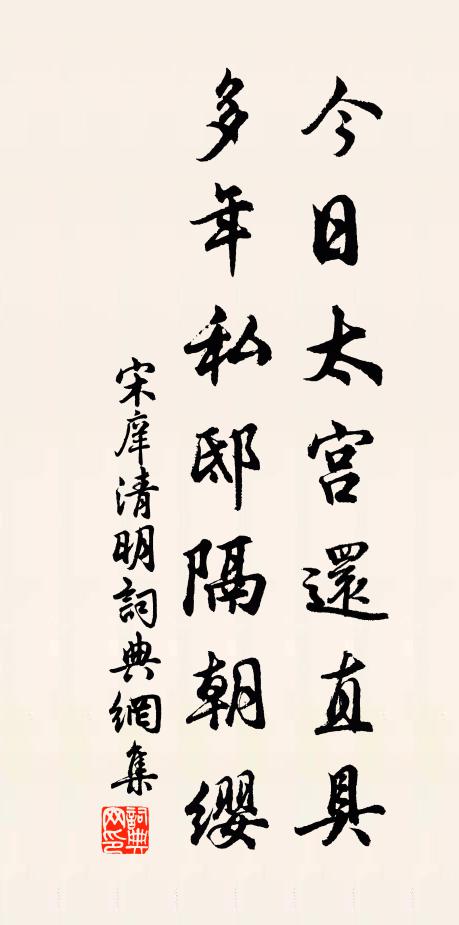 今日太宮還直具
多年私邸隔朝纓
宋庠清明詞典網集
詞典網印